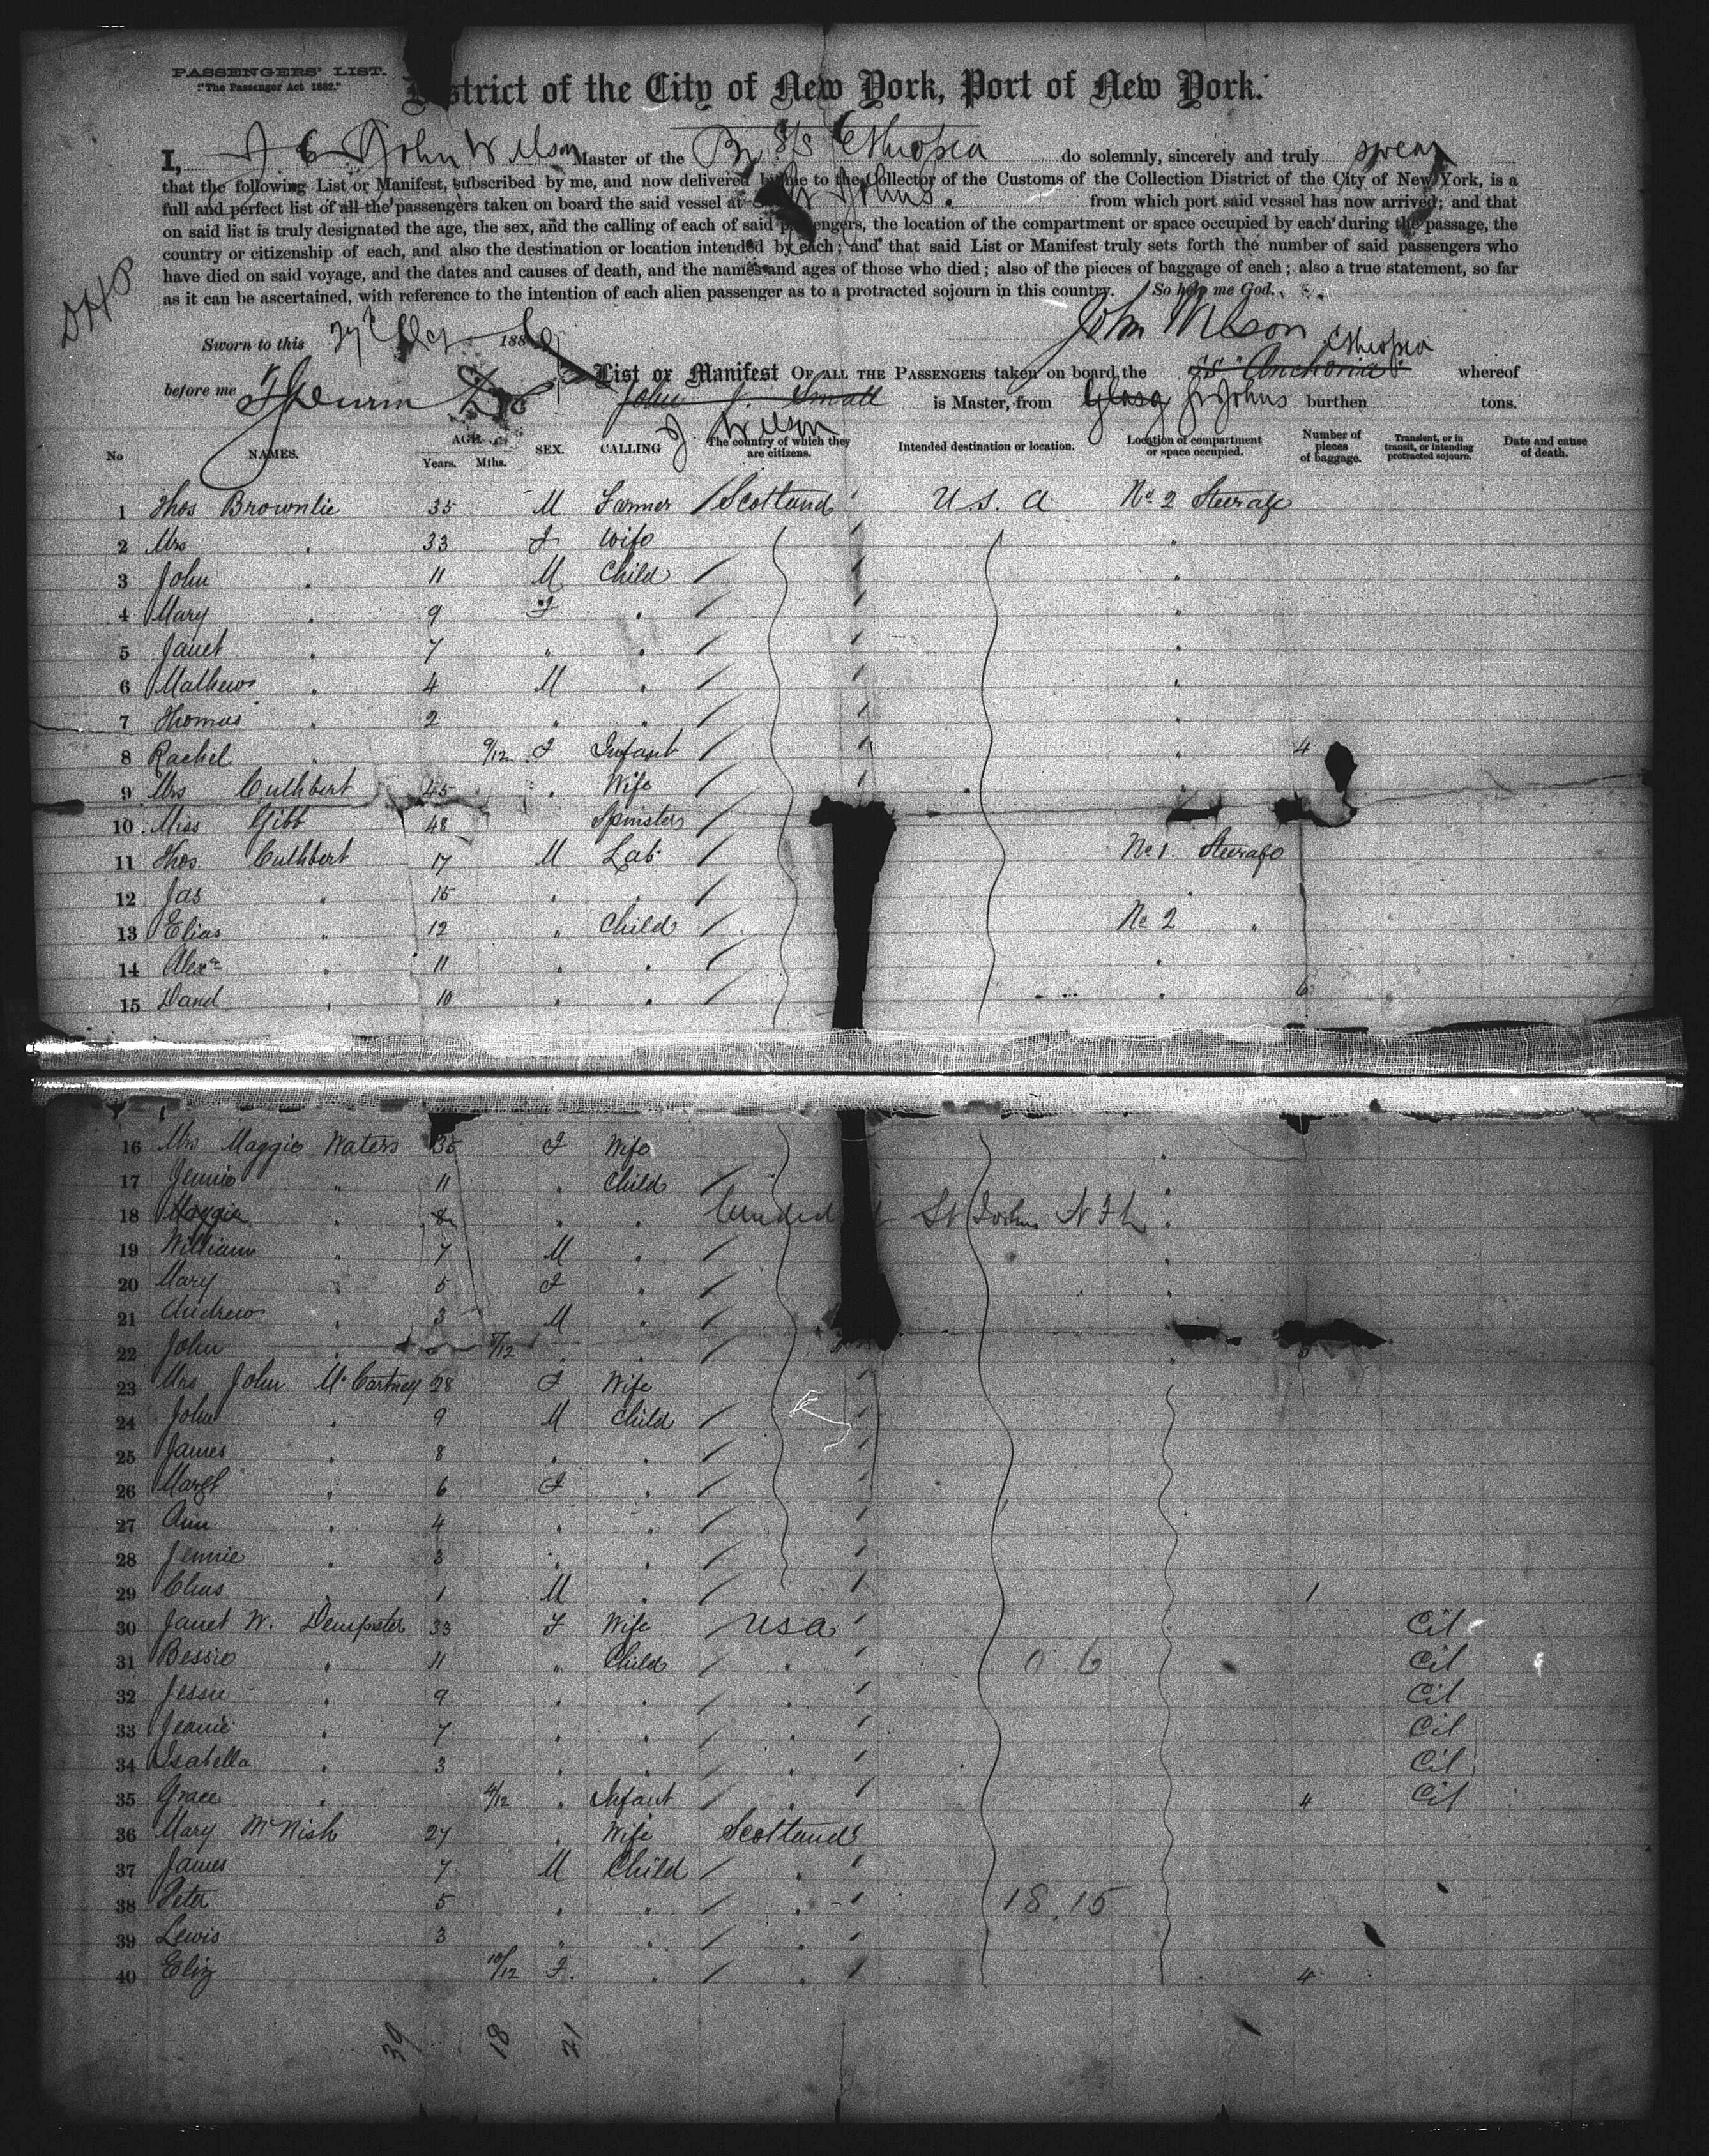 PASSENGERS' LIST.
"The Passenger Act 1882."
District of the City of New York, Port of New York.
I, John Wilson Master of the Br S/S Ethiopia do solemnly, sincerely and truly swear
that the following List or Manifest, subscribed by me, and now delivered by me to the Collector of the Customs of the Collection District of the City of New York, is a
full and perfect list of all the passengers taken on board the said vessel at St Johns. from which port said vessel has now arrived; and that
on said list is truly designated the age, the sex, and the calling of each of said passengers, the location of the compartment or space occupied by each during the passage, the
country or citizenship of each, and also the destination or location intended by each; and that said List or Manifest truly sets forth the number of said passengers who
have died on said voyage, and the dates and causes of death, and the names and ages of those who died; also of the pieces of baggage of each; also a true statement, so far
as it can be ascertained, with reference to the intention of each alien passenger as to a protracted sojourn in this country. So help me God.
John Wilson
Sworn to this 188
Ethiopia
List or Manifest OF ALL THE PASSENGERS taken on board the SS "Anchoria" whereof
before me John J. Small is Master, from Glasg St Johns burthen tons.
J Wilson
No NAMES. AGE. Years. Mths. SEX. CALLING The country of which they are citizens. Intended destination or location. Location of compartment or space occupied. Number of pieces of baggage. Transient, or in transit, or intending protracted sojourn. Date and cause of death.
1 Thos Brownlie 35 M Farmer / Scotland U.S.A No 2 Steerage
2 Mrs " 33 F Wife "
3 John " 11 M Child / "
4 Mary " 9 F " / "
5 Janet " 7 " " / "
6 Mathew " 4 M " / "
7 Thomas " 2 " " / "
8 Rachel " 9/12 F Infant / " 4
9 Mrs Cuthbert 45 " Wife /
10 Miss Gibb 48 Spinster /
11 Thos. Cuthbert 17 M Lab / No 1. Steerage
12 Jas " 15 " " / "
13 Elias " 12 " Child / No 2 "
14 Alexr " 11 " " / "
15 David " 10 " " / " 6
16 Mrs Maggie Waters 35 F Wife "
17 Jennie " 11 " Child / "
18 Maggie " 8 " " Landed at St Johns N F L "
19 William " 7 M " / "
20 Mary " 5 F " / "
21 Andrew " 3 M " /
22 John " /12 " " / "
23 Mrs John McCartney 28 F Wife
24 John " 9 M Child /
25 James " 8 " " /
26 Margt " 6 F " /
27 Ann " 4 " " /
28 Jennie " 3 " " /
29 Chas " 1 M " / 1
30 Janet W. Dempster 33 F Wife / USA Cit
31 Bessie " 11 " Child / " 0 6 Cit
32 Jessie " 9 " " / " Cit
33 Jeanie " 7 " " / " Cit
34 Isabella " 3 " " / " Cit
35 Grace " 4/12 " Infant / " 4 Cit
36 Mary McNish 27 " Wife Scotland
37 James 7 M Child / "
38 Peter 5 " " / " 18.15
39 Lewis 3 " " / "
40 Eliz 10/12 F. " / " 4
39 18 21